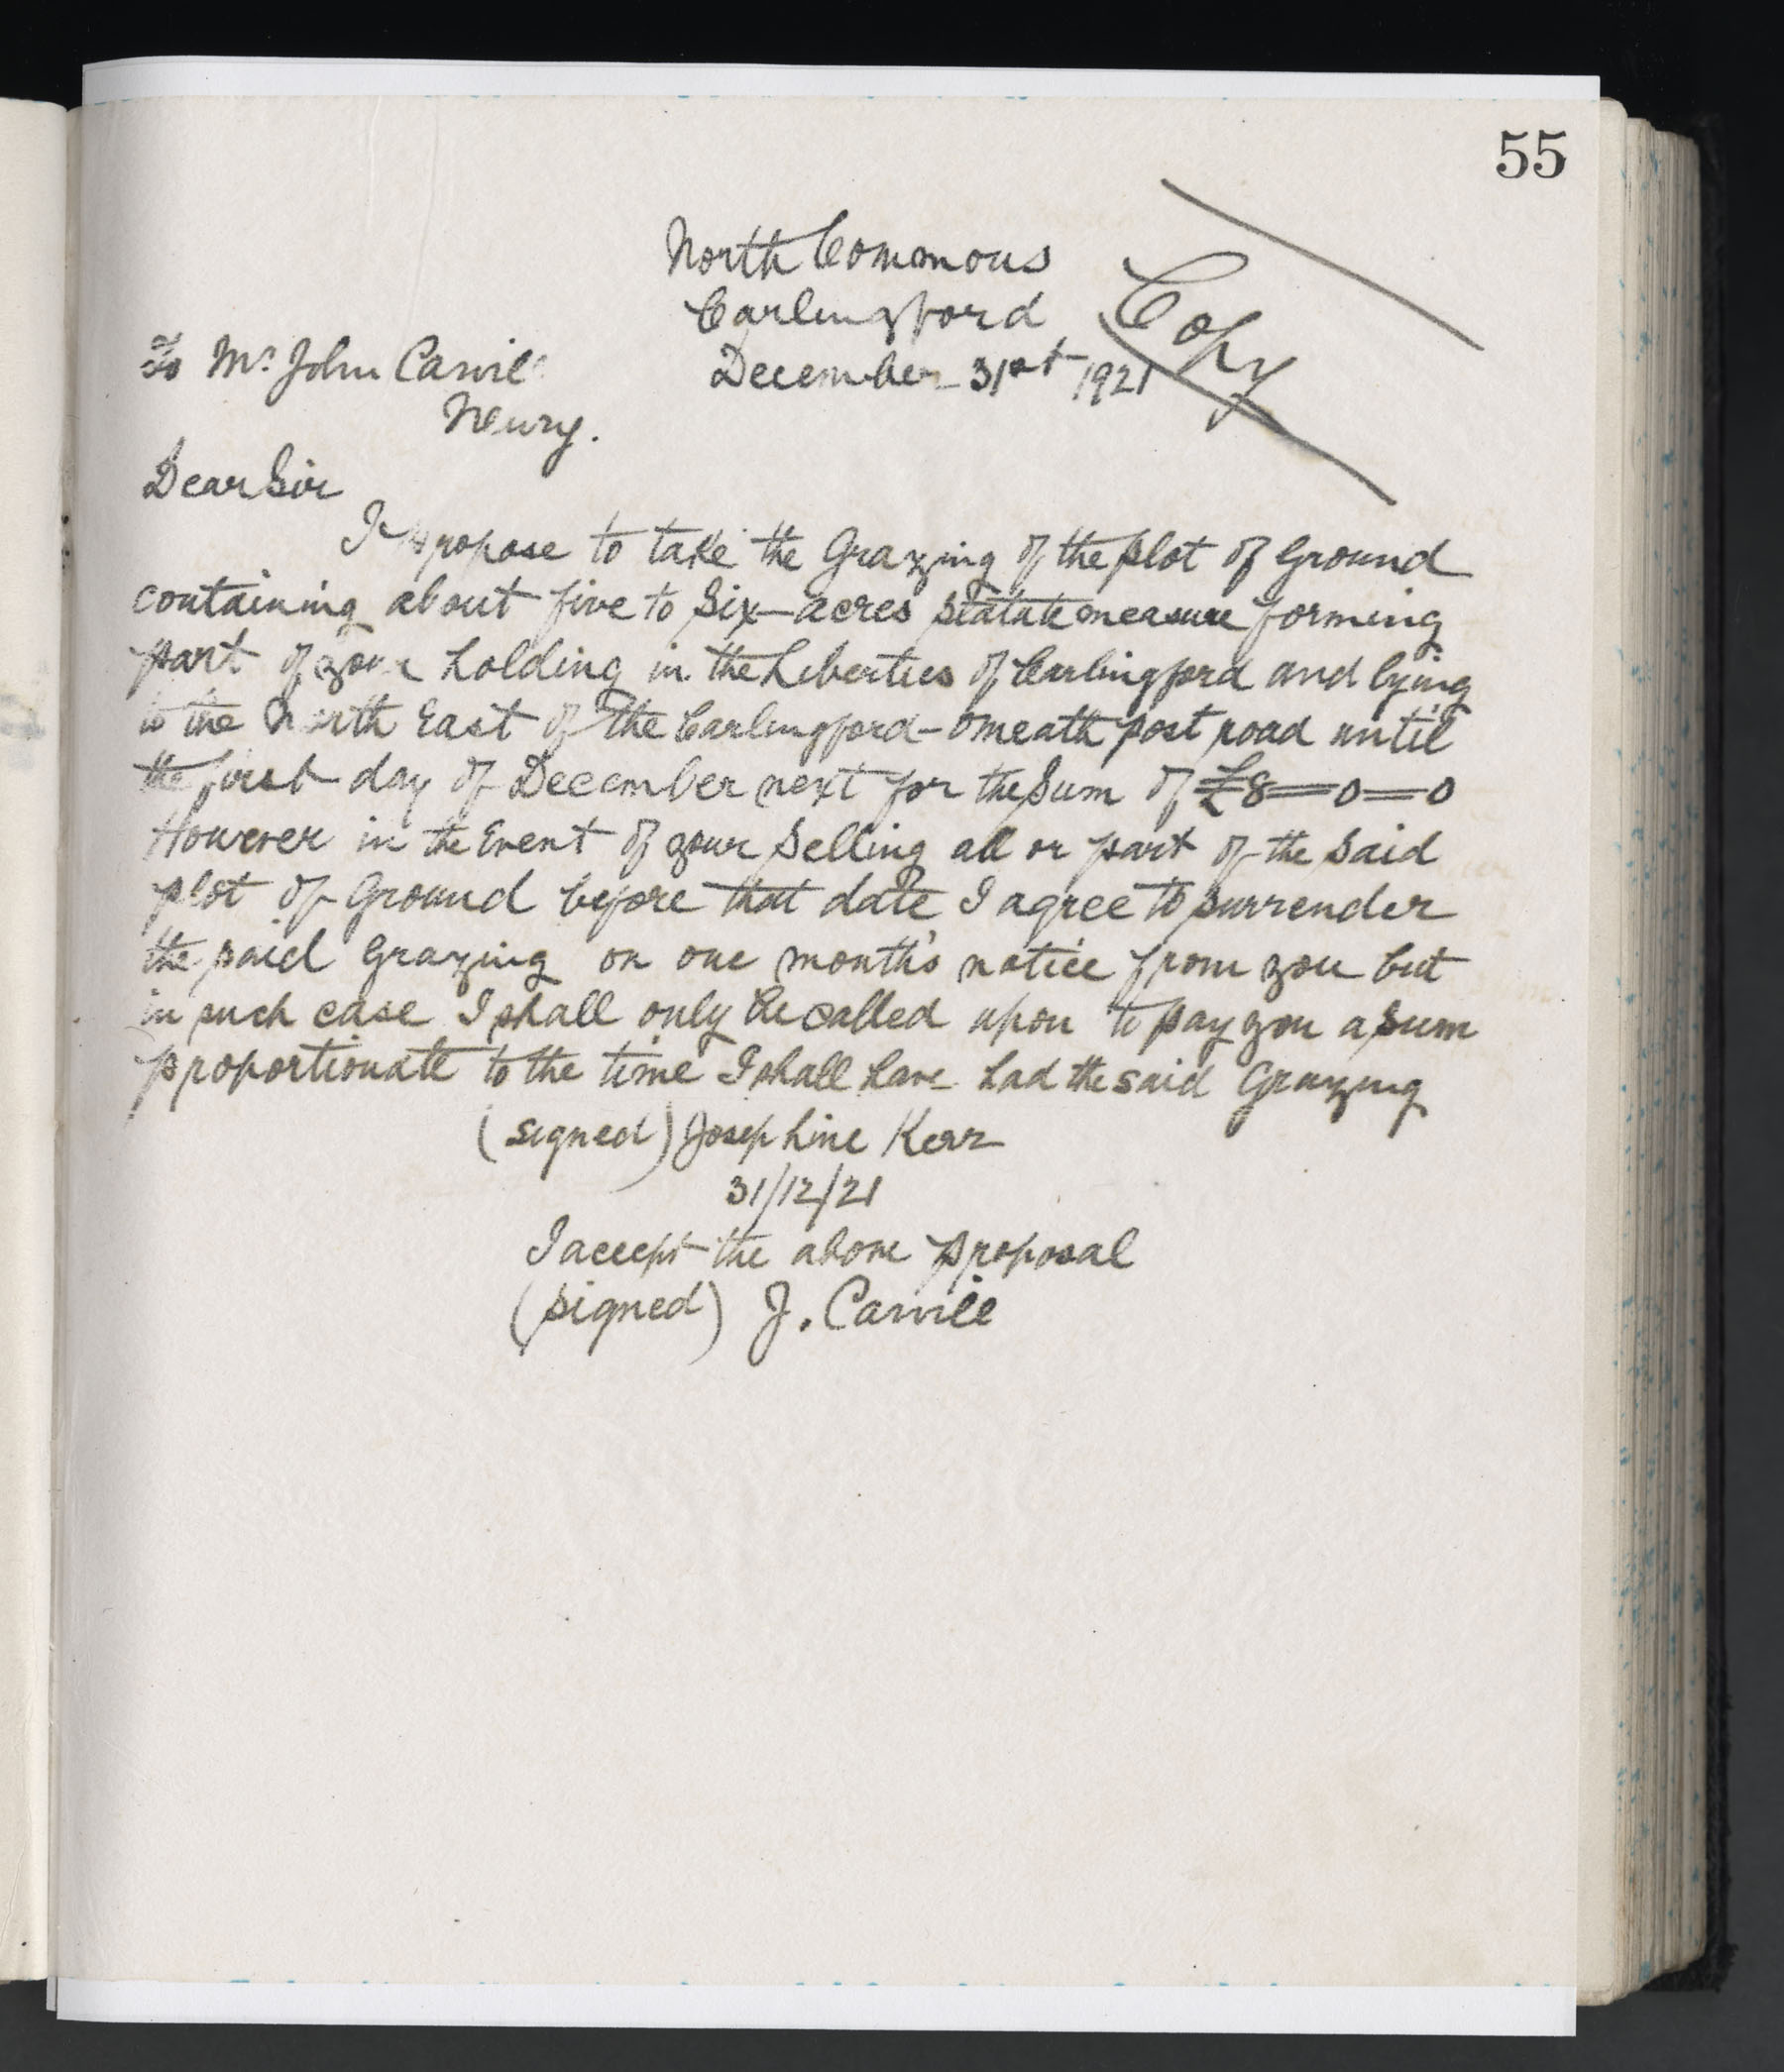 55
North Commons
Carlingford
Copy
December 31st 1921
To Mr. John Carvill
Newry.
Dear Sir
I propose to take the Grazing of the plot of Ground
containing about five to Six acres statute measure forming
part of your holding in the Liberties of Carlingford and lying
to the North East of the Carlingford-Omeath post road until
the first day of December next for the Sum of £8=0=0
However in the Event of your Selling all or part of the said
plot of Ground before that date I agree to surrender
the said Grazing on one month's notice from you but
in such case I shall only be called upon to pay you a sum
proportionate to the time I shall have had the said Grazing
(signed) Josephine Kerr
31/12/21
I accept the above proposal
(signed) J. Carvill